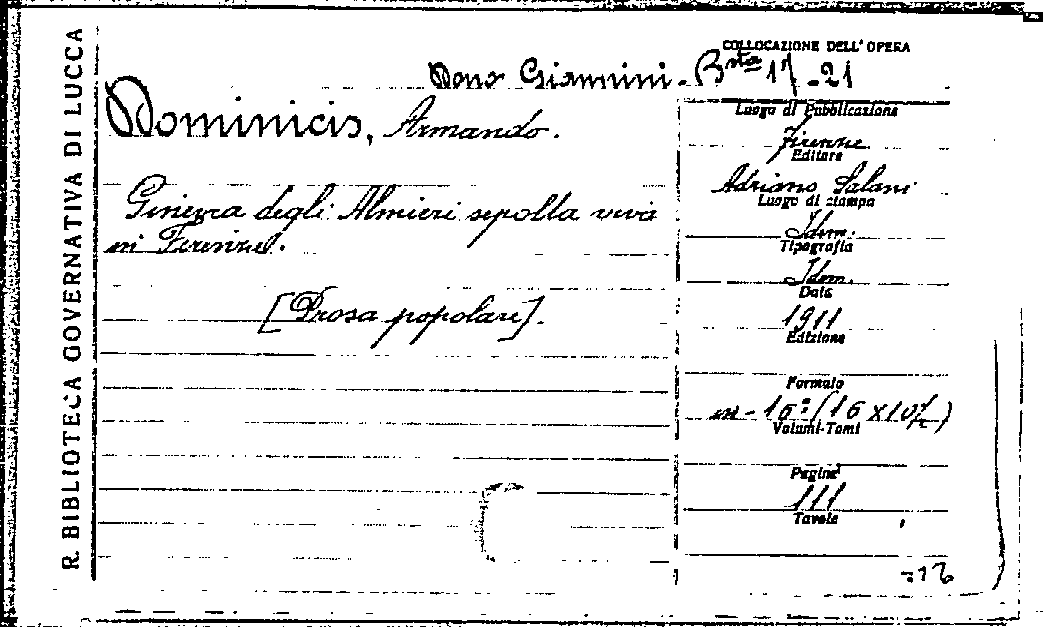 R. BIBLIOTECA GOVERNATIVA DI LUCCA
COLLOCAZIONE DELL'OPERA
Dono Giannini - Bsta 17 - 21
Dominicis, Armando.
Ginevra degli Almieri sepolta viva
in Firenze.
[Prosa popolare].
Luogo di Pubblicazione
Firenze
Editore
Adriano Salani
Luogo di stampa
Idem.
Tipografia
Idem.
Data
1911
Edizione
Formato
in-16º (16 x 10½)
Volumi-Tomi
Pagine
111
Tavole